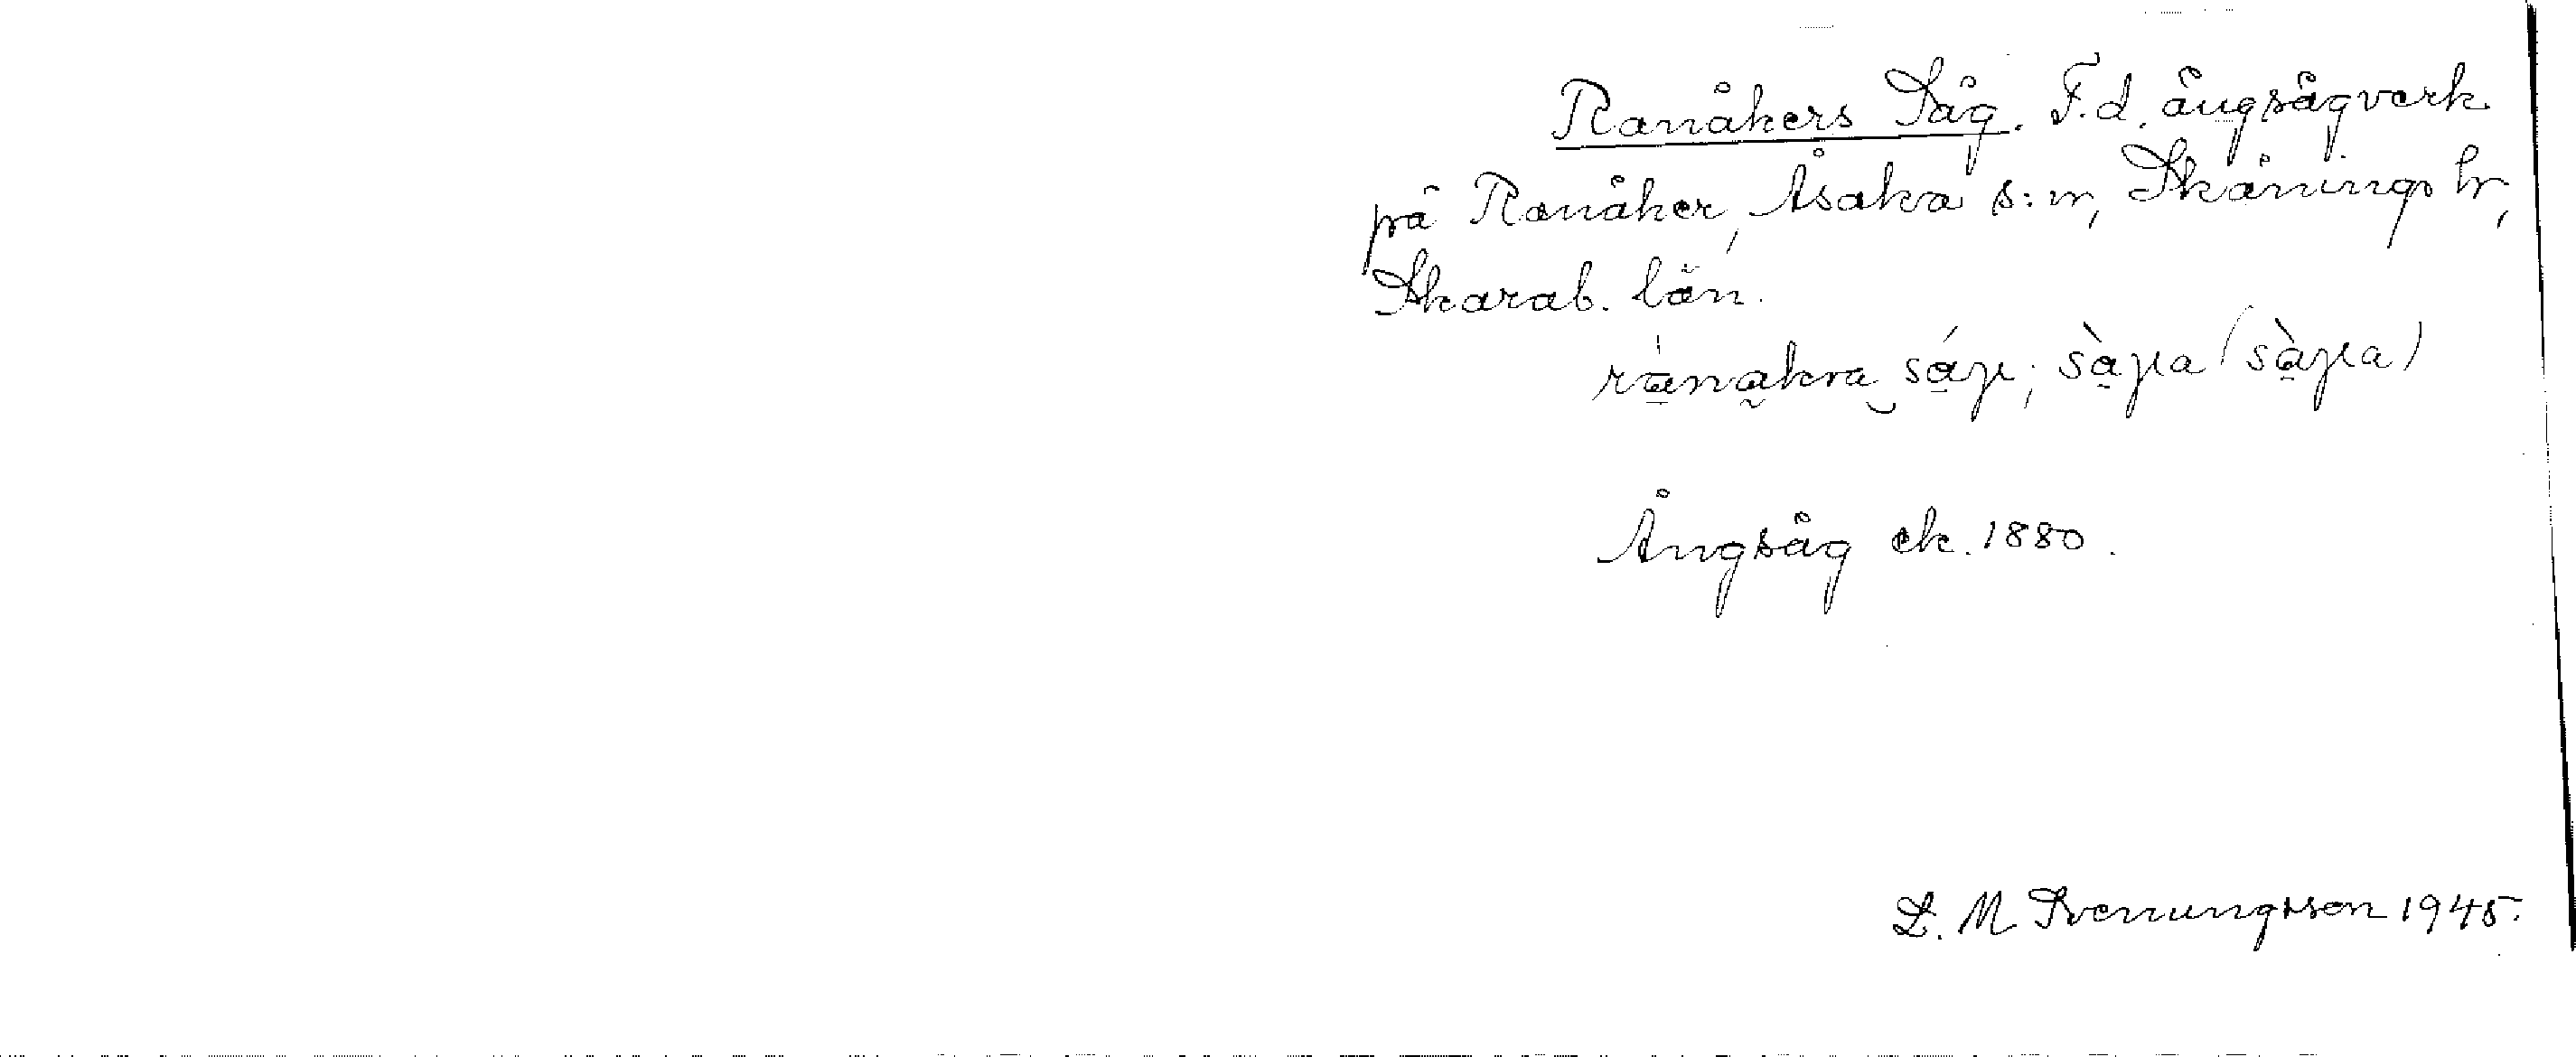 Ranåkers Såg. F.d. ångsågverk
på Ranåker, Åsaka s:n, Skånings hr,
Skarab. län.
rànakra sáɡ; sàɡa (sàɡa)
Ångsåg ek. 1880.
L. M. Svenungsson 1945.